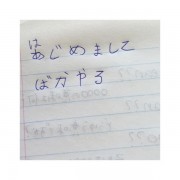 はじめまして
ばかやろ